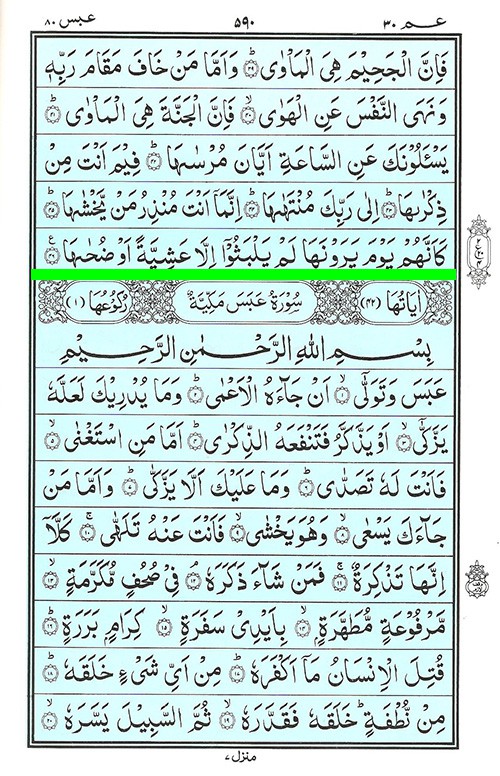 عبس ٨٠ ٥٩٠ عم ٣٠
فَاِنَّ الْجَحِيْمَ هِيَ الْمَاْوٰى ؕ﴿۳۹﴾ وَاَمَّا مَنْ خَافَ مَقَامَ رَبِّهٖ
وَ نَهَى النَّفْسَ عَنِ الْهَوٰى ۙ﴿۴۰﴾ فَاِنَّ الْجَنَّةَ هِيَ الْمَاْوٰى ؕ﴿۴۱﴾
يَسْـَٔلُوْنَكَ عَنِ السَّاعَةِ اَيَّانَ مُرْسٰىهَا ؕ﴿۴۲﴾ فِيْمَ اَنْتَ مِنْ
ذِكْرٰىهَا ؕ﴿۴۳﴾ اِلٰى رَبِّكَ مُنْتَهٰىهَا ؕ﴿۴۴﴾ اِنَّمَاۤ اَنْتَ مُنْذِرُ مَنْ يَّخْشٰىهَا ؕ﴿۴۵﴾
كَاَنَّهُمْ يَوْمَ يَرَوْنَهَا لَمْ يَلْبَثُوْۤا اِلَّا عَشِيَّةً اَوْ ضُحٰىهَا ﴿۴۶﴾
اٰيَاتُهَا (٤٢) سُوْرَةُ عَبَسَ مَكِّيَّةٌ رُكُوْعُهَا (١)
بِسْمِ اللّٰهِ الرَّحْمٰنِ الرَّحِيْمِ
عَبَسَ وَتَوَلّٰىۤ ۙ﴿۱﴾ اَنْ جَآءَهُ الْاَعْمٰى ؕ﴿۲﴾ وَمَا يُدْرِيْكَ لَعَلَّهٗ
يَزَّكّٰىۤ ۙ﴿۳﴾ اَوْ يَذَّكَّرُ فَتَنْفَعَهُ الذِّكْرٰى ؕ﴿۴﴾ اَمَّا مَنِ اسْتَغْنٰى ۙ﴿۵﴾
فَاَنْتَ لَهٗ تَصَدّٰى ؕ﴿۶﴾ وَمَا عَلَيْكَ اَلَّا يَزَّكّٰى ؕ﴿۷﴾ وَاَمَّا مَنْ
جَآءَكَ يَسْعٰى ۙ﴿۸﴾ وَهُوَ يَخْشٰى ۙ﴿۹﴾ فَاَنْتَ عَنْهُ تَلَهّٰى ۚ﴿۱۰﴾ كَلَّاۤ
اِنَّهَا تَذْكِرَةٌ ۚ﴿۱۱﴾ فَمَنْ شَآءَ ذَكَرَهٗ ۘ﴿۱۲﴾ فِيْ صُحُفٍ مُّكَرَّمَةٍ ۙ﴿۱۳﴾
مَّرْفُوْعَةٍ مُّطَهَّرَةٍ ۭ﴿۱۴﴾ بِاَيْدِيْ سَفَرَةٍ ۙ﴿۱۵﴾ كِرَامٍ بَرَرَةٍ ؕ﴿۱۶﴾
قُتِلَ الْاِنْسَانُ مَاۤ اَكْفَرَهٗ ؕ﴿۱۷﴾ مِنْ اَيِّ شَيْءٍ خَلَقَهٗ ؕ﴿۱۸﴾
مِنْ نُّطْفَةٍ ؕ خَلَقَهٗ فَقَدَّرَهٗ ۙ﴿۱۹﴾ ثُمَّ السَّبِيْلَ يَسَّرَهٗ ۙ﴿۲۰﴾
منزل ٧